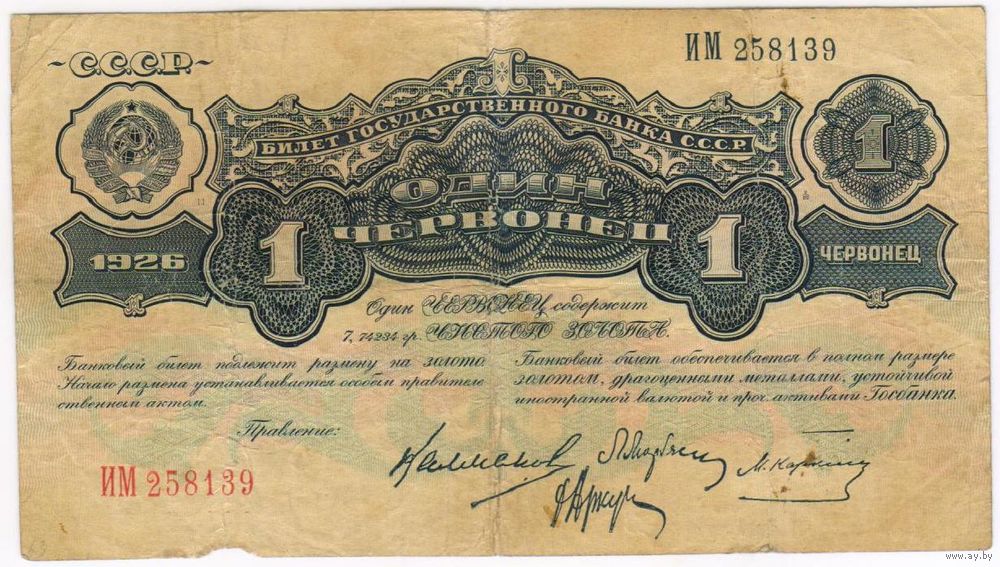 С.С.С.Р.
ИМ 258139
1
1 1
БИЛЕТ ГОСУДАРСТВЕННОГО БАНКА С.С.С.Р.
1
ОДИН
ЧЕРВОНЕЦ
1 1
1926
ЧЕРВОНЕЦ
1 1
Один ЧЕРВОНЕЦ содержит
7,74234 гр. ЧИСТОГО ЗОЛОТА.
Банковый билет подлежит размену на золото
Начало размена устанавливается особым правитель
ственным актом.
Банковый билет обеспечивается в полном размере
золотом, драгоценными металлами, устойчивой
иностранной валютой и проч. активами Госбанка.
Правление:
ИМ 258139
www.ay.by